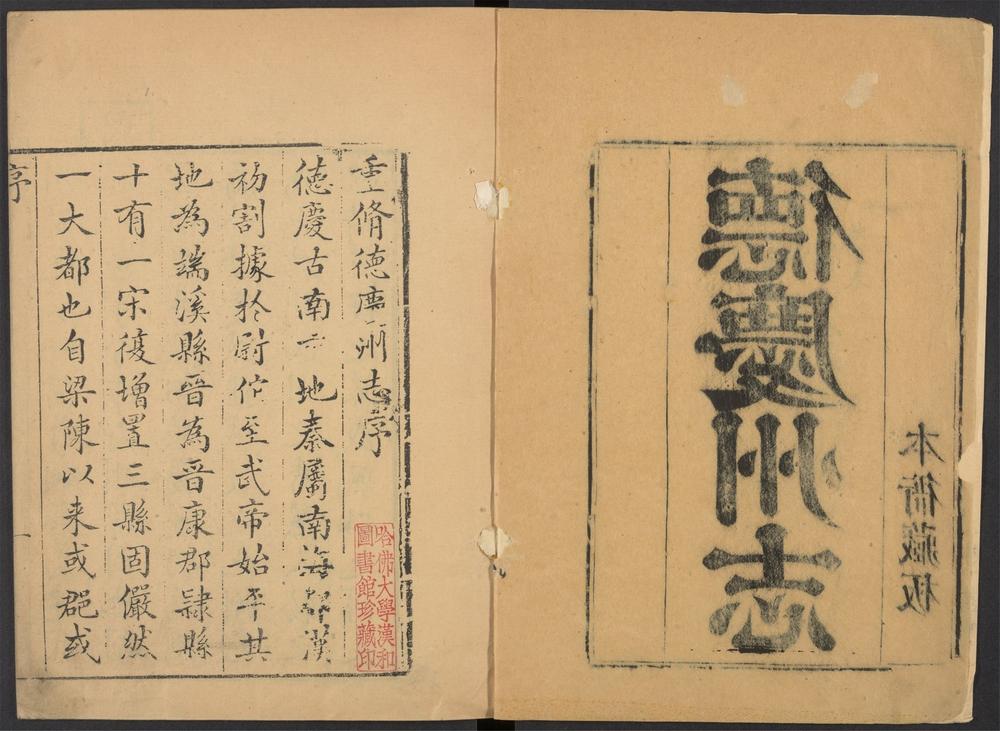 德慶州志
本衙藏板
重脩德慶州志序
德慶古南 地秦屬南海郡漢
初割據於尉佗至武帝始平其
地為端溪縣晉為晉康郡隷縣
十有一宋復增置三縣固儼然
一大都也自梁陳以来或郡或
序
一
哈佛大學漢和
圖書館珍藏印